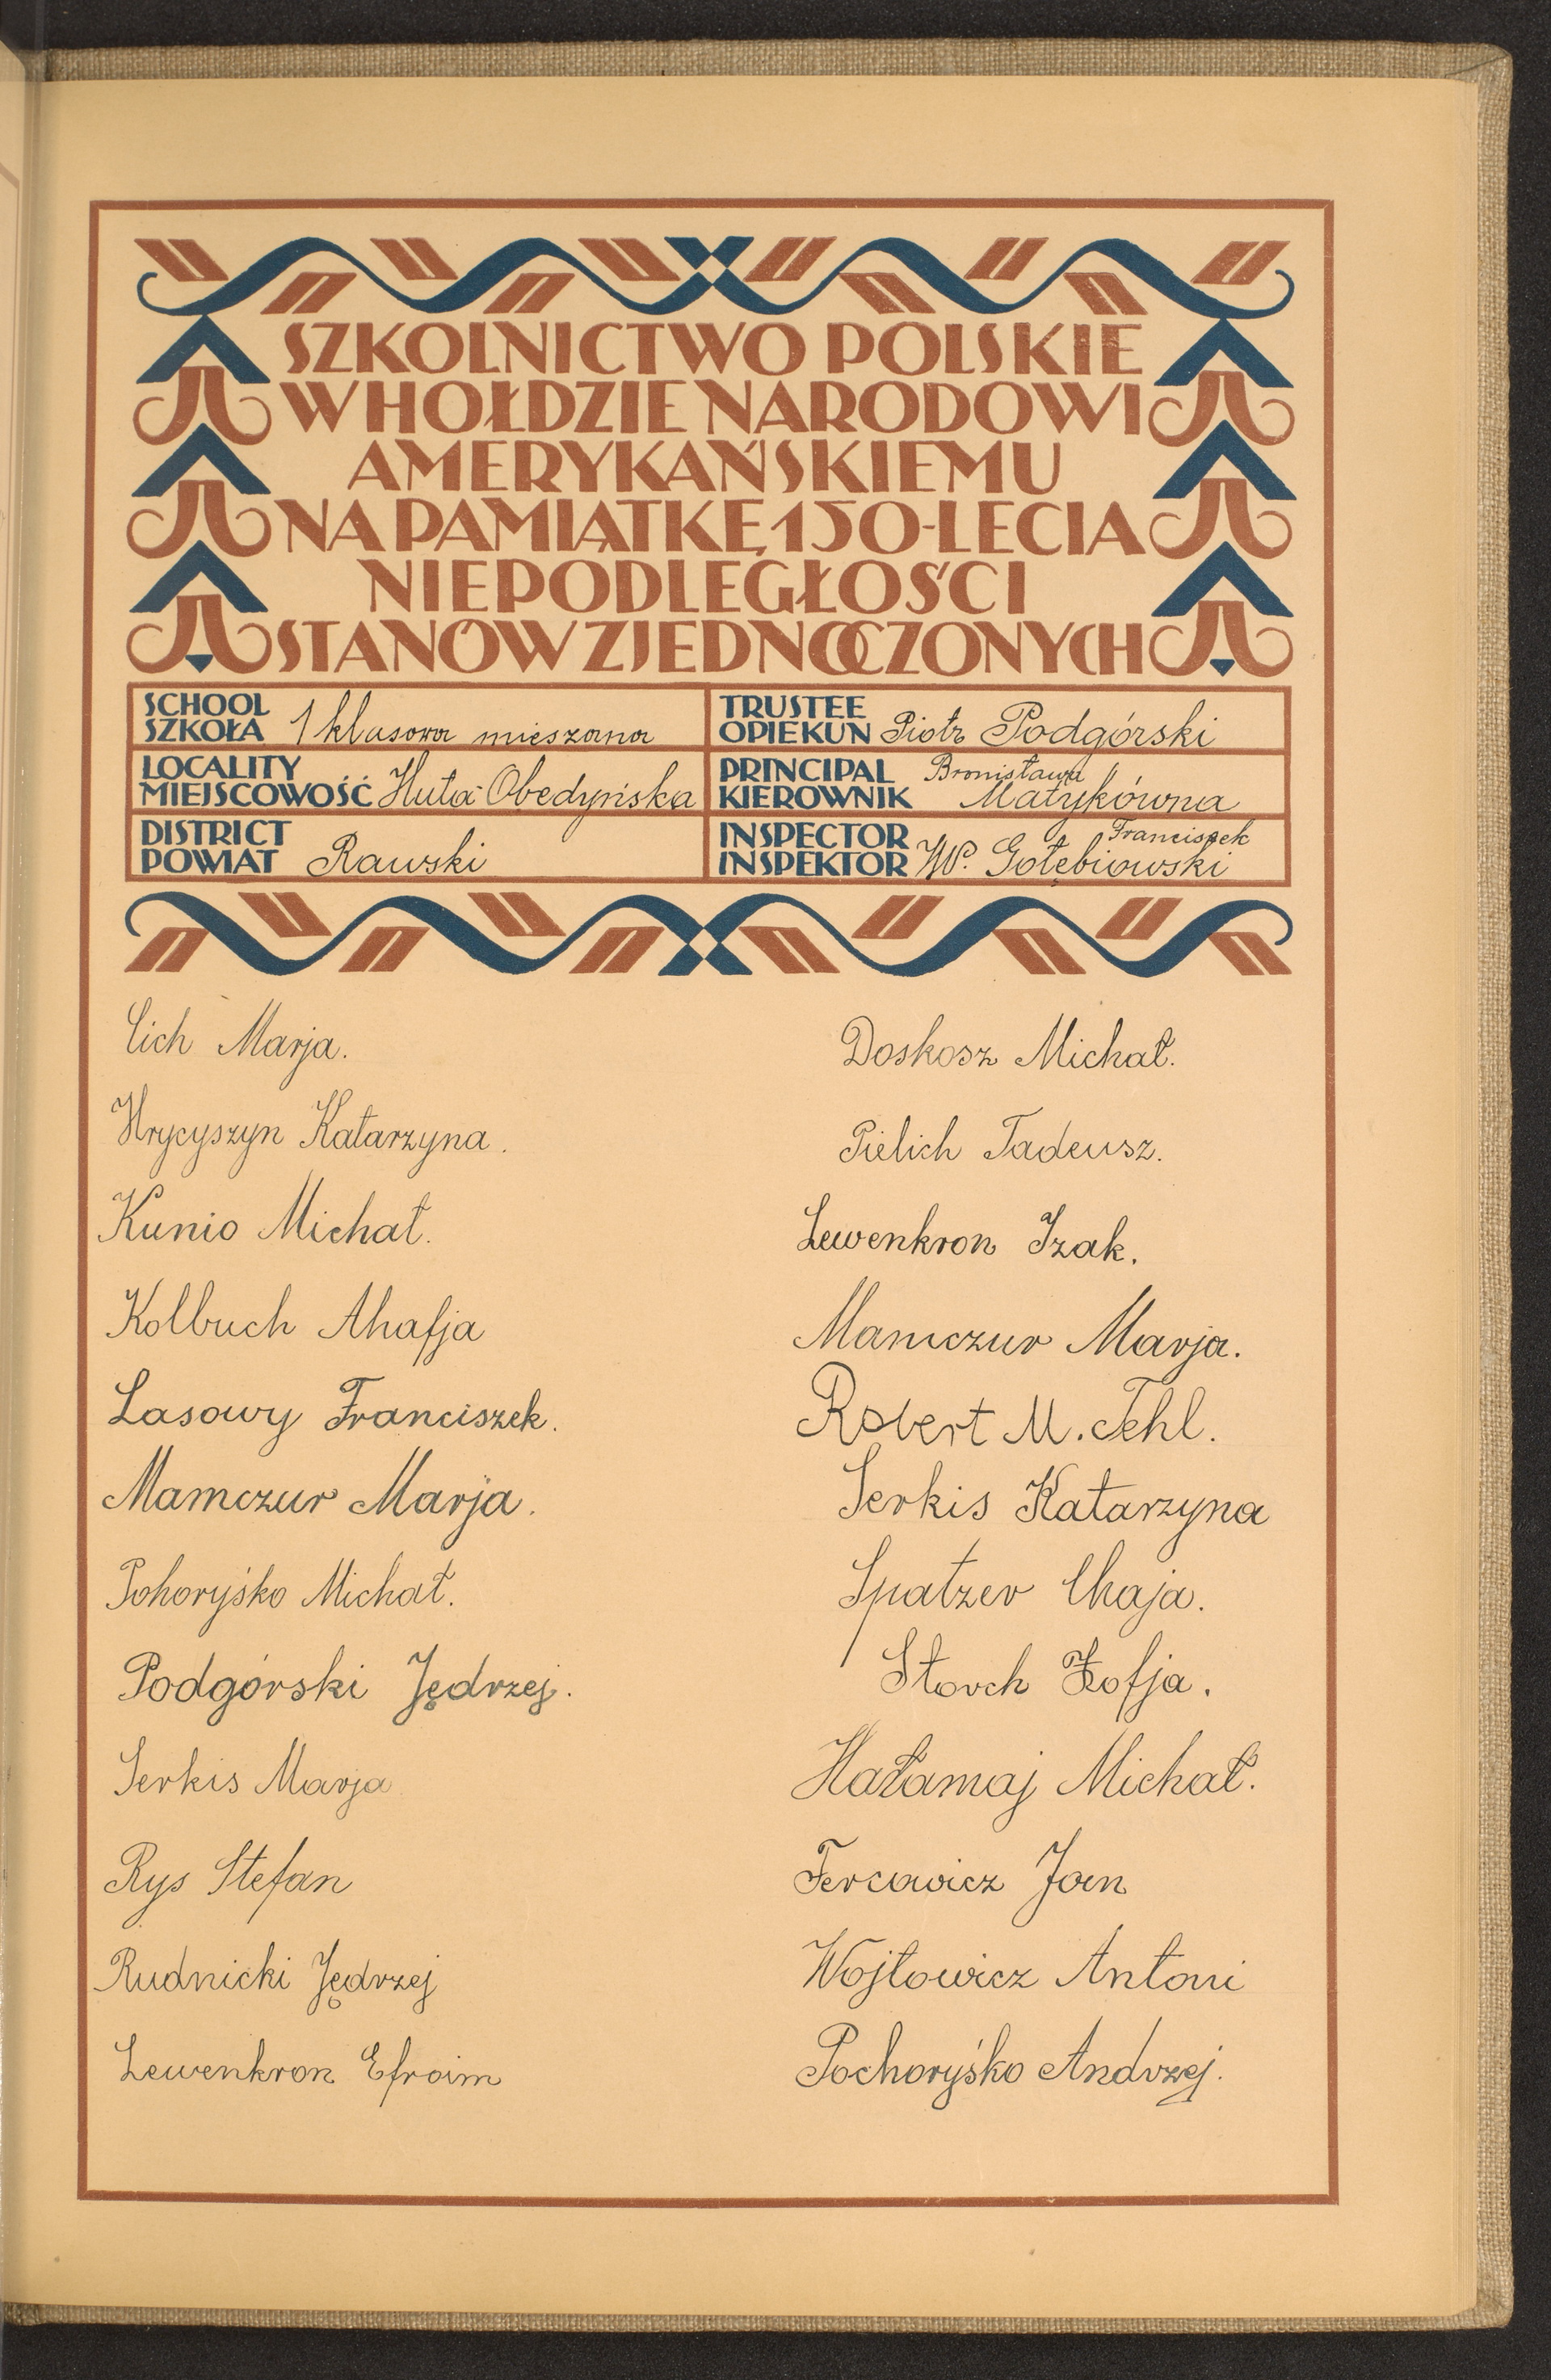 SZKOLNICTWO POLSKIE
W HOŁDZIE NARODOWI
AMERYKAŃSKIEMU
NA PAMIĄTKĘ 150-LECIA
NIEPODLEGŁOŚCI
STANÓW ZJEDNOCZONYCH
SCHOOL
SZKOŁA 1 klasowa mieszana
LOCALITY
MIEJSCOWOŚĆ Huta Obedyńska
DISTRICT
POWIAT Rawski
TRUSTEE
OPIEKUN Piotr Podgórski
PRINCIPAL Bronisława
KIEROWNIK Matykówna
INSPECTOR Franciszek
INSPEKTOR W. Gołębiowski
Cich Marja.
Hrycyszyn Katarzyna.
Kunio Michał.
Kolbuch Ahafja
Lasowy Franciszek.
Mamczur Marja.
Pohoryśko Michał.
Podgórski Jędrzej.
Serkis Marja
Rys Stefan
Rudnicki Jędrzej
Lewenkron Efroim
Doskosz Michał.
Pielich Tadeusz.
Lewenkron Izak.
Mamczur Marja.
Robert M. Fehl.
Serkis Katarzyna
Spatzer Chaja.
Storch Zofja.
Hałamaj Michał.
Fercowicz Jan
Wojtowicz Antoni
Pochoryśko Andrzej.